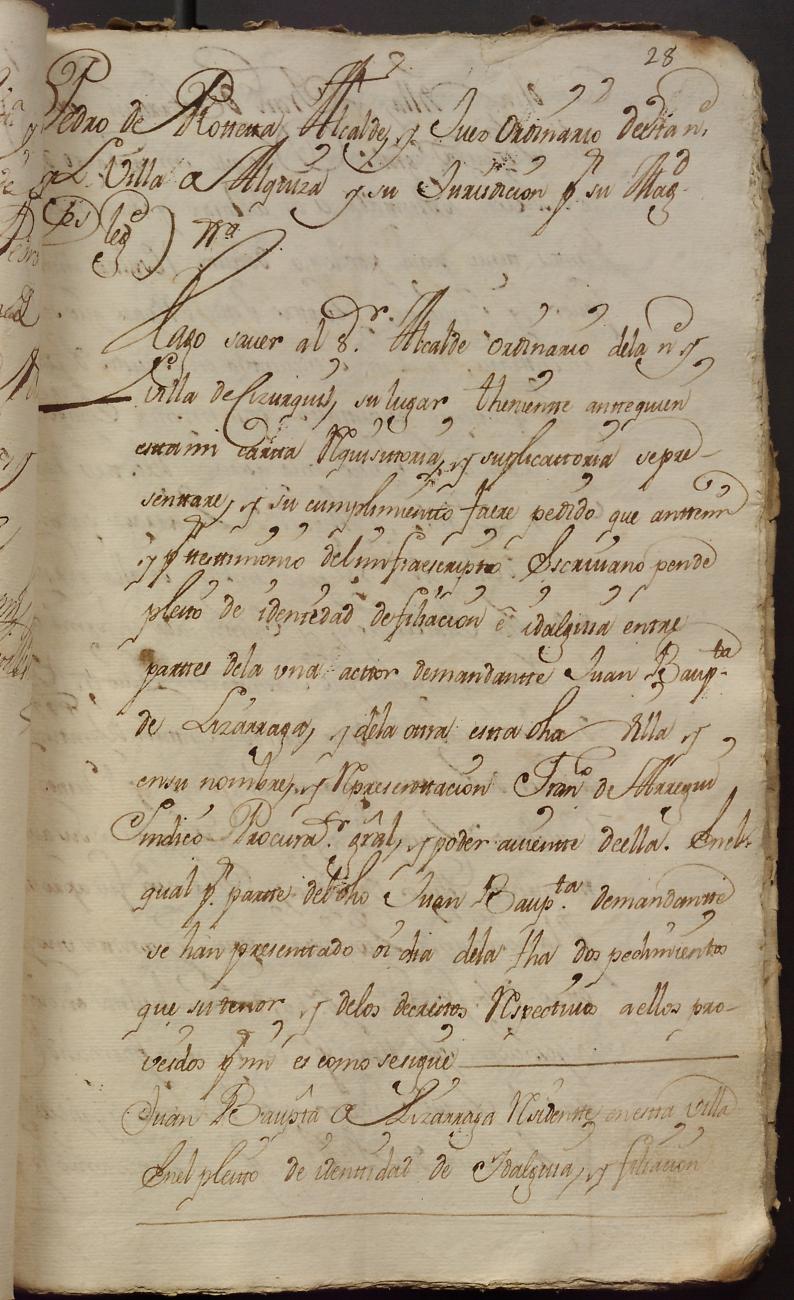 28
Pedro de Rotteta Alcalde, y Juez Ordinario de esta n.
y L. Villa de Alquiza y su Jurisdicion p.r su Mag.d
leg.o
Hago saver al S.r Alcalde ordinario dela n. y
Villa de Cizurquil, su lugar theniente antte quien
esta mi cartta Rquisittoria, y suplicattoria se pre-
senttare, y su cumplimiento fuere pedido que antte mi
y p.r testtimonio del infraescripto Escrivano pende
pleito de identedad de filiacion e idalguia entre
parttes dela una acttor demandantte Juan Baup.ta
de Lizarraga, y dela otra esta dha Villa y
en su nombre, y Rpresenttacion Fran.co de Arregui
Sindico Procura.r grâl, y poder avientte de ella. En el
qual p.r partte del dho Juan Baup.ta demandantte
se han presenttado oi dia dela fha dos pedimientos
que su tenor, y delos decretos Rspectivos a ellos pro-
veidos p.r mi es como se sigue
Juan Baupta de Lizarraga Rsidentte en esta villa
En el pleito de identidad de Idalguia, y filiacion